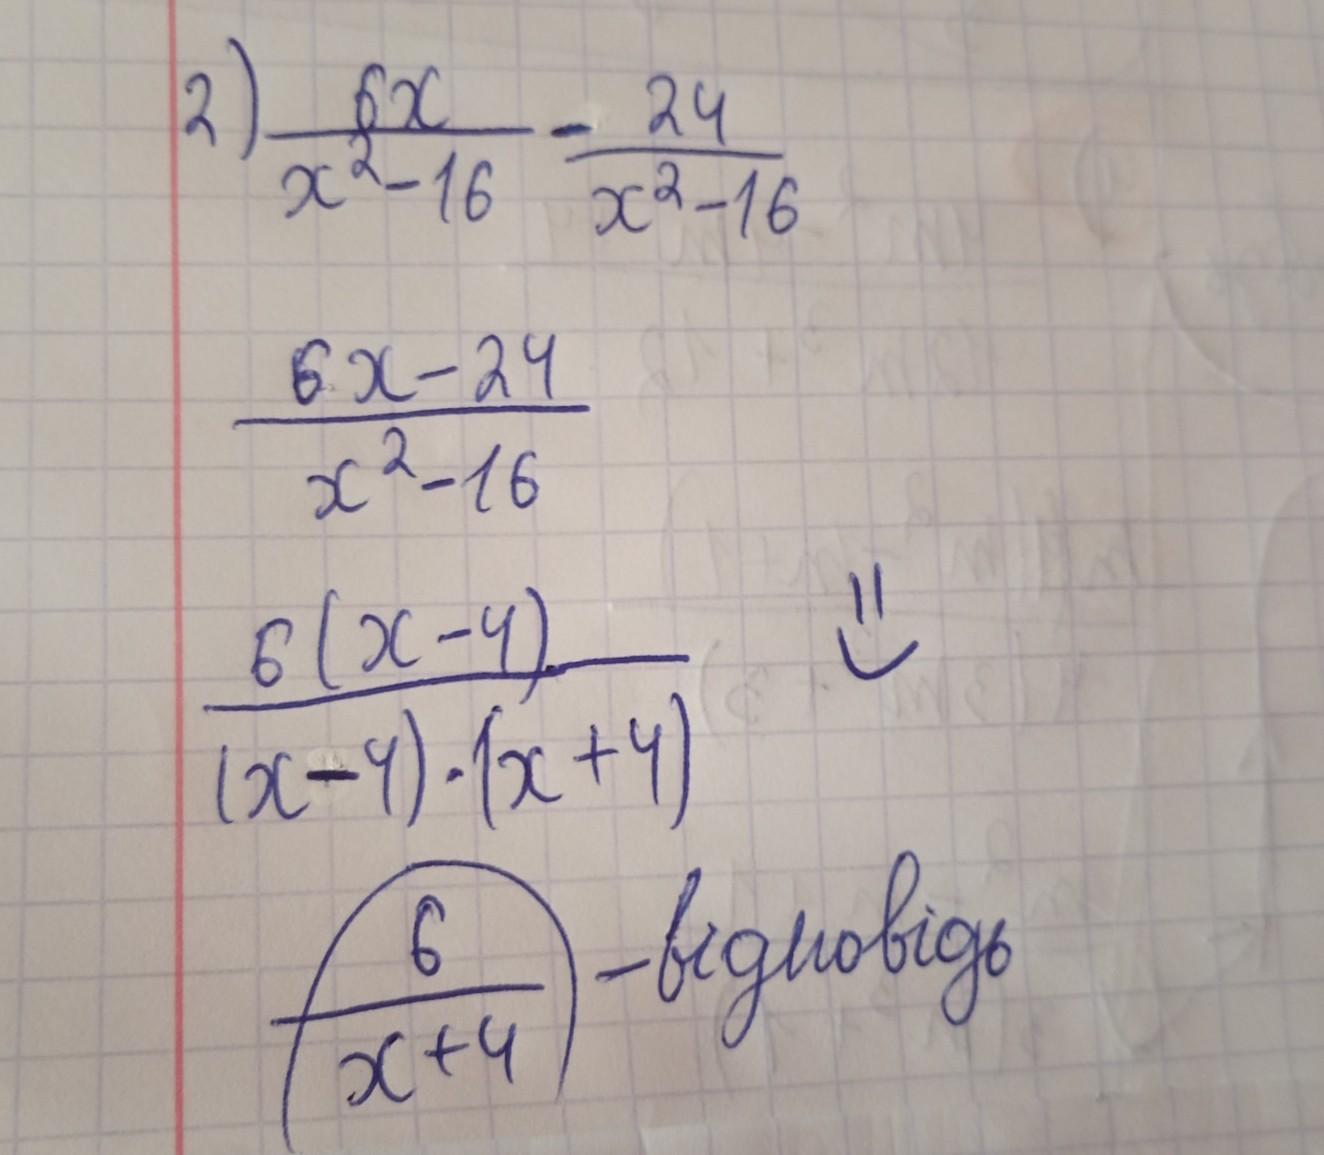 2) 6x/(x²-16) - 24/(x²-16)
6x-24
x²-16
6(x-4)
(x-4)·(x+4)
6
x+4
-відповідь